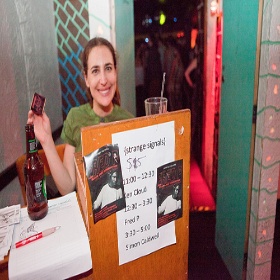 [strange signals]
$15
11:00 - 12:30
Ben Cloud
12:30 - 3:30
Fred P
3:30 - 5:00
Simon Caldwell